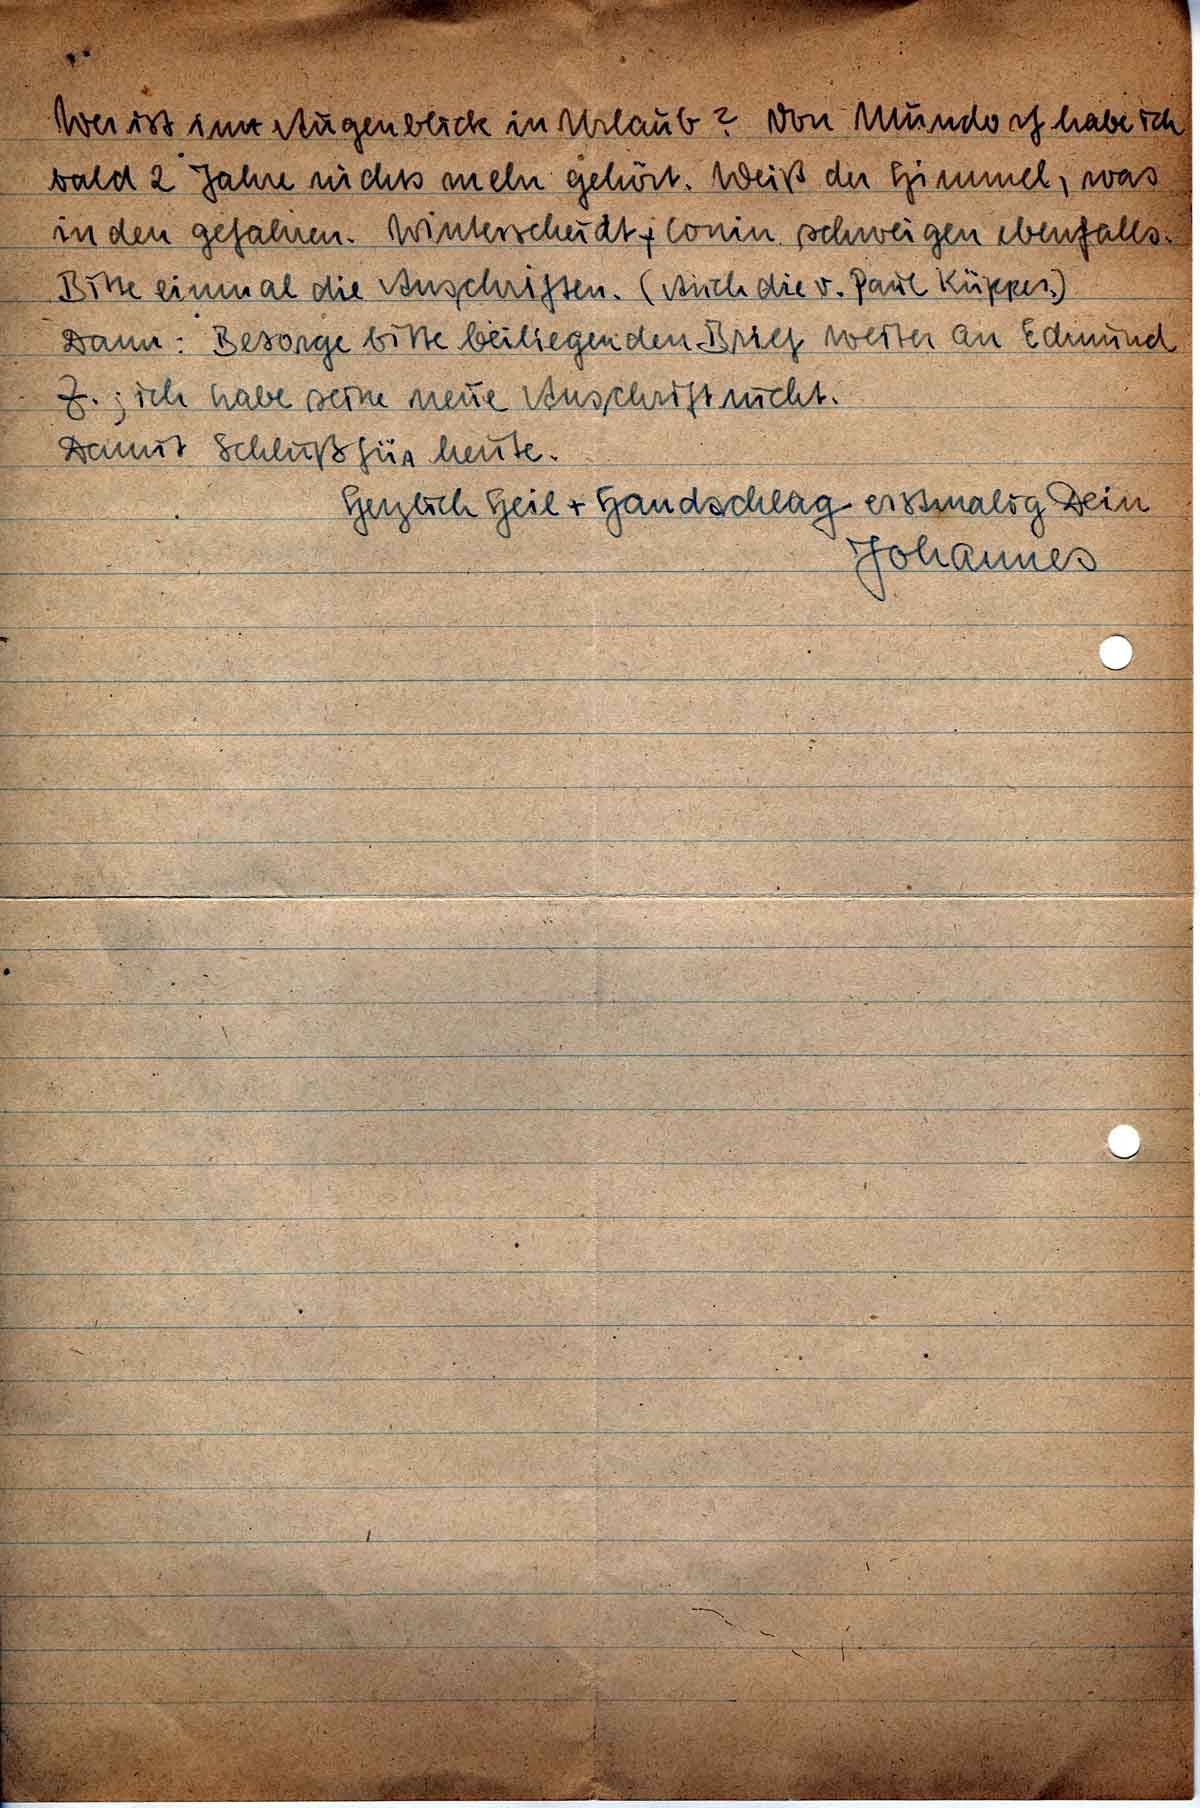 Wer ist im Augenblick in Urlaub? Von Mundorf habe ich
bald 2 Jahre nichts mehr gehört. Weiß der Himmel, was
in den gefahren. Winterscheidt + Conin schweigen ebenfalls.
Bitte einmal die Anschriften. (Auch die v. Paul Küpper.)
Dann: Besorge bitte beiliegenden Brief weiter an Edmund
Z.; ich habe seine neue Anschrift nicht.
Damit Schluß für heute.
Herzlich Heil + Handschlag erstmalig Dein
Johannes